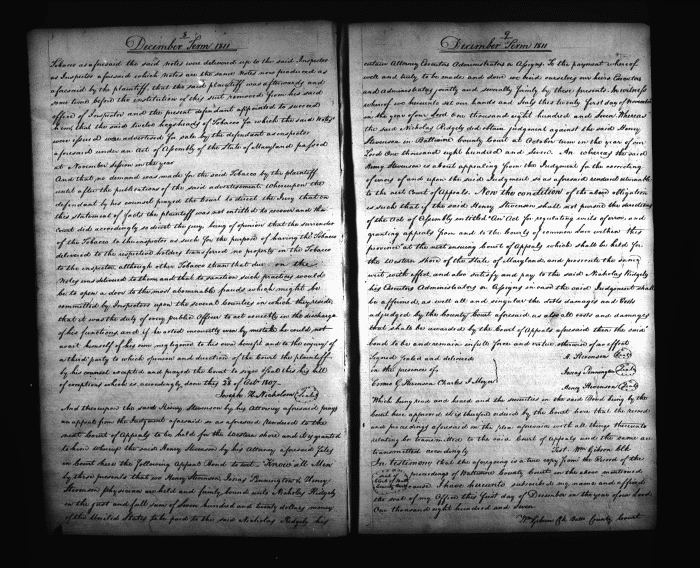 8
December Term 1811
Tobacco as aforesaid the said notes were delivered up to the said Inspector
as Inspector aforesaid which Notes are the same Notes now produced as
aforesaid by the plaintiff, that the said plaintiff was afterwards and
some time before the institution of this suit removed from his said
office of Inspector and the present defendant appointed to succeed
him, that the said twelve hogsheads of Tobacco for which the said Notes
were issued was advertised for sale by the defendant as inspector
aforesaid under an Act of Assembly of the State of Maryland passed
at November Session in the year
And that no demand was made for the said Tobacco by the plaintiff
until after the publications of the said advertisement whereupon the
defendant by his counsel prayed the Court to direct the Jury that on
this statement of facts the plaintiff was not entitled to recover and the
Court did accordingly so direct the jury, being of opinion that the surrender
of the Tobacco to the inspector as such for the purpose of having the Tobacco
delivered to the respective holders transferred no property in the Tobacco
to the inspector although other Tobacco than that due on the
Notes was delivered to them and that to sanction such practices would
be to open a door to the most abominable frauds which might be
committed by Inspectors upon the several counties in which they reside
that it was the duty of every public Officer to act correctly in the discharge
of his functions, and if he acted incorrectly even by mistake he would not
avail himself of his own neglegence to his own benefit and to the injury of
a third party to which opinion and direction of the Court the plaintiff
by his counsel excepted and prayed the Court to sign & seal this his bill
of exceptions which is accordingly done this 28 of Oct 1807.
Joseph H. Nicholson (Seal)
And thereupon the said Henry Stevenson by his Attorney aforesaid prays
an appeal from the Judgment aforesaid so as aforesaid Rendered to the
next Court of Appeals to be held for the Western shore and it is granted
to him whereupon the said Henry Stevenson by his Attorney aforesaid files
in Court here the following Appeal Bond to wit. Know all Men
by these presents that we Henry Stevenson, Josias Pennington & Henry
Stevenson physician are held and firmly bound unto Nicholas Ridgely
in the just and full sum of Seven hundred and twenty dollars money
of the United States to be paid to the said Nicholas Ridgely his
9
December Term 1811
certain Attorney Executors Administrators or Assigns. To the payment whereof
well and truly to be made and done we bind ourselves our heirs Executors
and Administrators jointly and severally firmly by these presents. In witness
whereof we hereunto set our hands and Seals this twenty first day of November
in the year of our Lord One thousand eight hundred and Seven Whereas
the said Nicholas Ridgely did obtain judgment against the said Henry
Stevenson in Baltimore County Court at October term in the year of our
Lord One thousand eight hundred and Seven. An whereas the said
Henry Stevenson is about appealing from the Judgment for the correcting
of errors of and upon the said Judgment so as aforesaid rendered returnable
to the next Court of Appeals. Now the condition of the above obligation
is such that if the said Henry Stevenson shall not pursue the directions
of the Act of Assembly entitled "An Act for regulating writs of error, and
granting appeals from and to the Courts of common Law within this
province" at the next ensuing Court of Appeals which shall be held for
the Western shore of the State of Maryland, and prosecute the same
writ with effect, and also satisfy and pay to the said Nicholas Ridgely
his Executors Administrators or Assigns in case the said Judgment shall
be affirmed, as well all and singular the debts damages and Costs
adjudged by the County Court aforesaid, as also all costs and damages
that shall be awarded by the Court of Appeals aforesaid then the said
bond to be and remain in full force and virtue otherwise of no effect
Signed Sealed and delivered H. Stevenson (Seal)
in the presence of Josias Pennington (Seal)
Cosmo G. Stevenson Charles F Mayer Henry Stevenson (Seal)
Which being read and heard and the securities in the said Bond being by the
Court here approved it is therefore ordered by the Court here that the record
and proceedings aforesaid in the plea aforesaid with all things thereunto
relating be transmitted to the said Court of appeals and the same are
transmitted accordingly Test. Wm Gibson Clk
In testimony that the aforegoing is a true copy from the Record of the
proceedings of Baltimore County Court in the above mentioned
cause I have hereunto subscribed my name and affixed
the seal of my Office this first day of December in the year of our Lord
One thousand eight hundred and Seven
Wm Gibson Clk Balto County Court